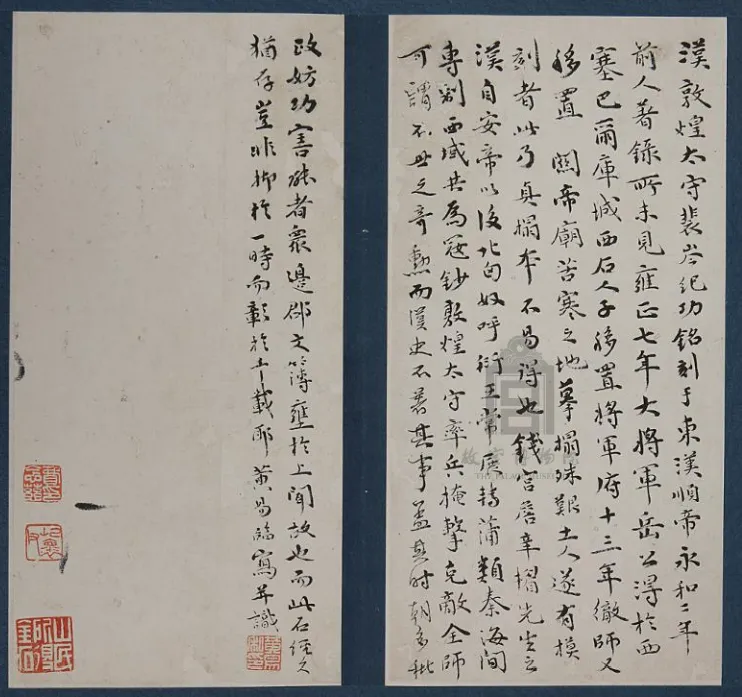 漢敦煌太守裴岑紀功銘刻于東漢順帝永和二年
前人著錄所未見雍正七年大將軍岳公得於西
塞巴爾庫城西石人子移置將軍府十三年徹師又
移置 關帝廟苦寒之地摹搨殊艱土人遂有摸
刻者此乃真搨本不易得也錢宮詹辛楣先生云
漢自安帝以後北匈奴呼衍王常展轉蒲類秦海間
專制西域共為寇鈔敦煌太守率兵掩擊克敵全師
可謂不世之奇勳而漢史不著其事蓋其時朝多秕
政妨功害能者眾邊郡文簿壅於上聞故也而此石經久
猶存豈非抑於一時而彰於千載耶黃易臨寫并識
故宮博物院
THE PALACE MUSEUM